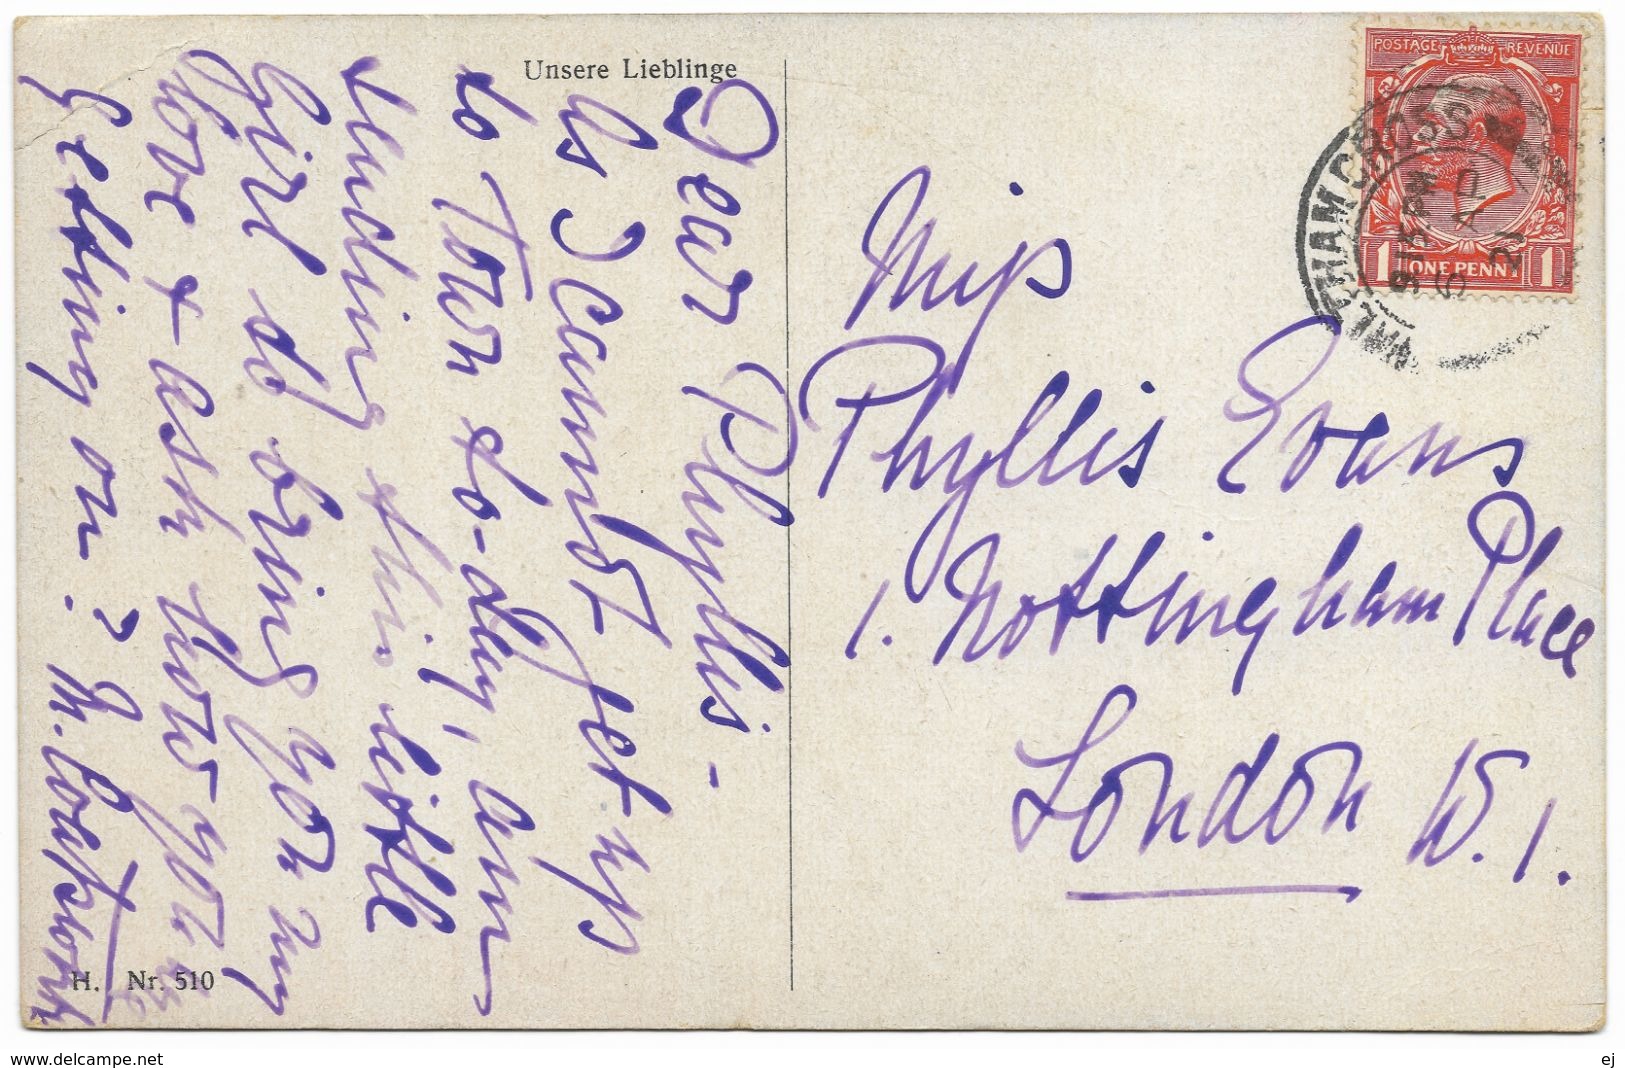 Unsere Lieblinge
Dear Phyllis -
As I cannot get up
to Town to-day, am
sending this little
Girl to bring you my
love & ask how you are
getting on? M.
H. Nr. 510
Miss
Phyllis Evans
1. Nottingham Place
London W. 1.
POSTAGE REVENUE
1 ONE PENNY 1
WALTHAM CROSS
www.delcampe.net
ej